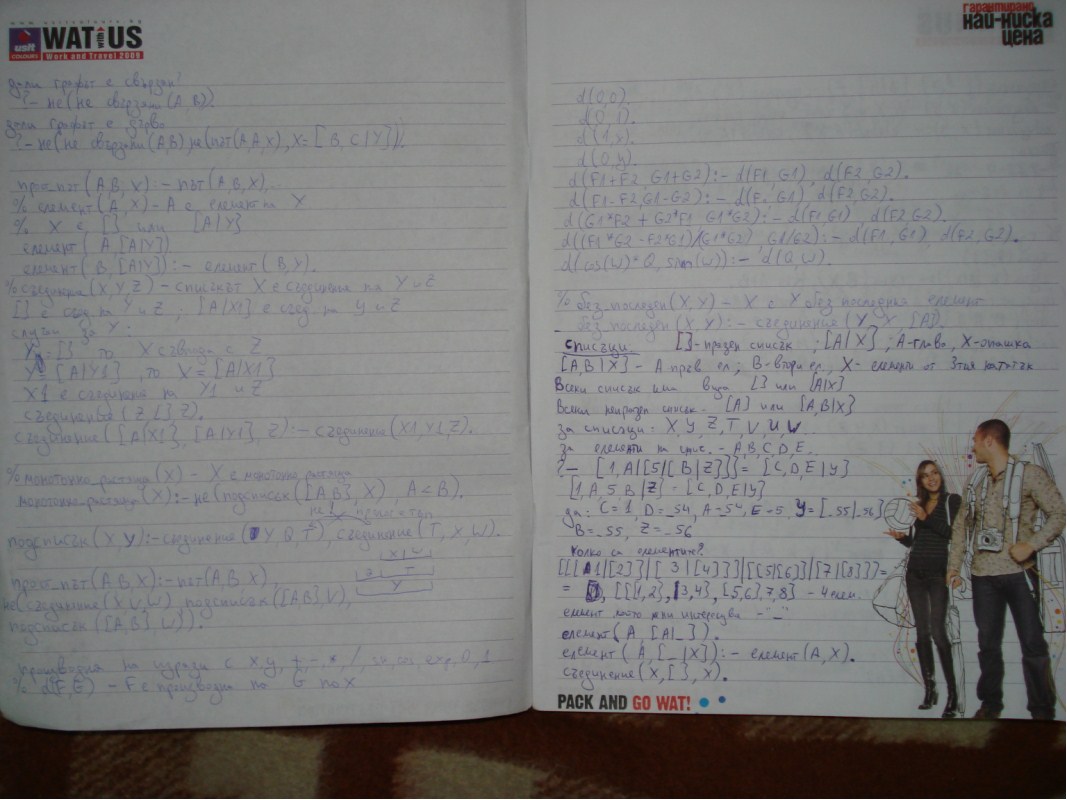 www.usitcolours.bg
usit
COLOURS
WAT with US
Work and Travel 2008
дали графът е свързан?
?- не(не свързани(A,B)).
дали графът е дърво
?- не(не свързани(A,B)), не(път(A,A,X), X=[B,C|Y]).
прост_път(A,B,X):- път(A,B,X),
% елемент(A,X) - A е елемент на
% X е [] или [A|Y]
елемент(A,[A|Y])
елемент(B,[A|Y]):- елемент(B,Y).
% съединение(X,Y,Z) - списъкът X е съединение на Y и Z
[] е съед на Y и Z ; [A|X1] е съед на Y и Z
случаи за Y:
Y=[] то X съвпада с Z
Y=[A|Y1], то X=[A|X1]
X1 е съединение на Y1 и Z
съединение(Z,[],Z).
съединение([A|X1],[A|Y1],Z):- съединение(X1,Y1,Z).
% монотонно_растяща(X) - X е монотонно растяща
монотонно_растяща(X):- не(подсписък([A,B],X), A<B).
подсписък(X,Y):- съединение(Y,Q,T), съединение(T,X,W).
прост_път(A,B,X):- път(A,B,X),
не(съединение(X,U,W), подсписък([A,B],V),
подсписък([A,B],W)).
производна на изрази с x,y,+,-,*,/ sin,cos,exp,0,1
% d(F,G) - F е производна по G по x
гарантирано
най-ниска
цена
d(0,0).
d(0,1).
d(1,x).
d(0,y).
d(F1+F2,G1+G2):- d(F1,G1), d(F2,G2).
d(F1-F2,G1-G2):- d(F1,G1), d(F2,G2).
d(G1*F2 + G2*F1, G1*G2):- d(F1,G1), d(F2,G2).
d((F1*G2-F2*G1)/(G1*G2), G1/G2):- d(F1,G1), d(F2,G2).
d(cos(W)*Q, sin(W)):- d(Q,W).
% без_последен(X,Y) - X е Y без последния елемент
без_последен(X,Y):- съединение(Y,X,[A]).
списъци: []-празен списък ; [A|X] ; A-глава, X-опашка
[A,B|X] - A първ ел ; B-втори ел, X- елементи от 3тия нататък
Всеки списък има вида [] или [A|X]
Всеки непразен списък - [A] или [A,B|X]
за списъци: X,Y,Z,T,V,U,W
за елементи на спис. - A,B,C,D,E
?- [1,A|[5|[B|Z]]] = [C,D,E|Y]
[1,A,5,B|Z] = [C,D,E|Y]
да: C=1, D=_54, A=_54, E=5, Y=[_55|_56]
B=_55, Z=_56
Колко са елементите?
[[[1|[2]]|[3|[4]]]|[[5|[6]]|[7|[8]]]]=
= [[[1,2],3,4],[5,6],7,8] - 4 елем.
елемент който не ни интересува - "_"
елемент(A,[A|_]).
елемент(A,[_|X]):- елемент(A,X).
съединение(X,[],X).
PACK AND GO WAT!